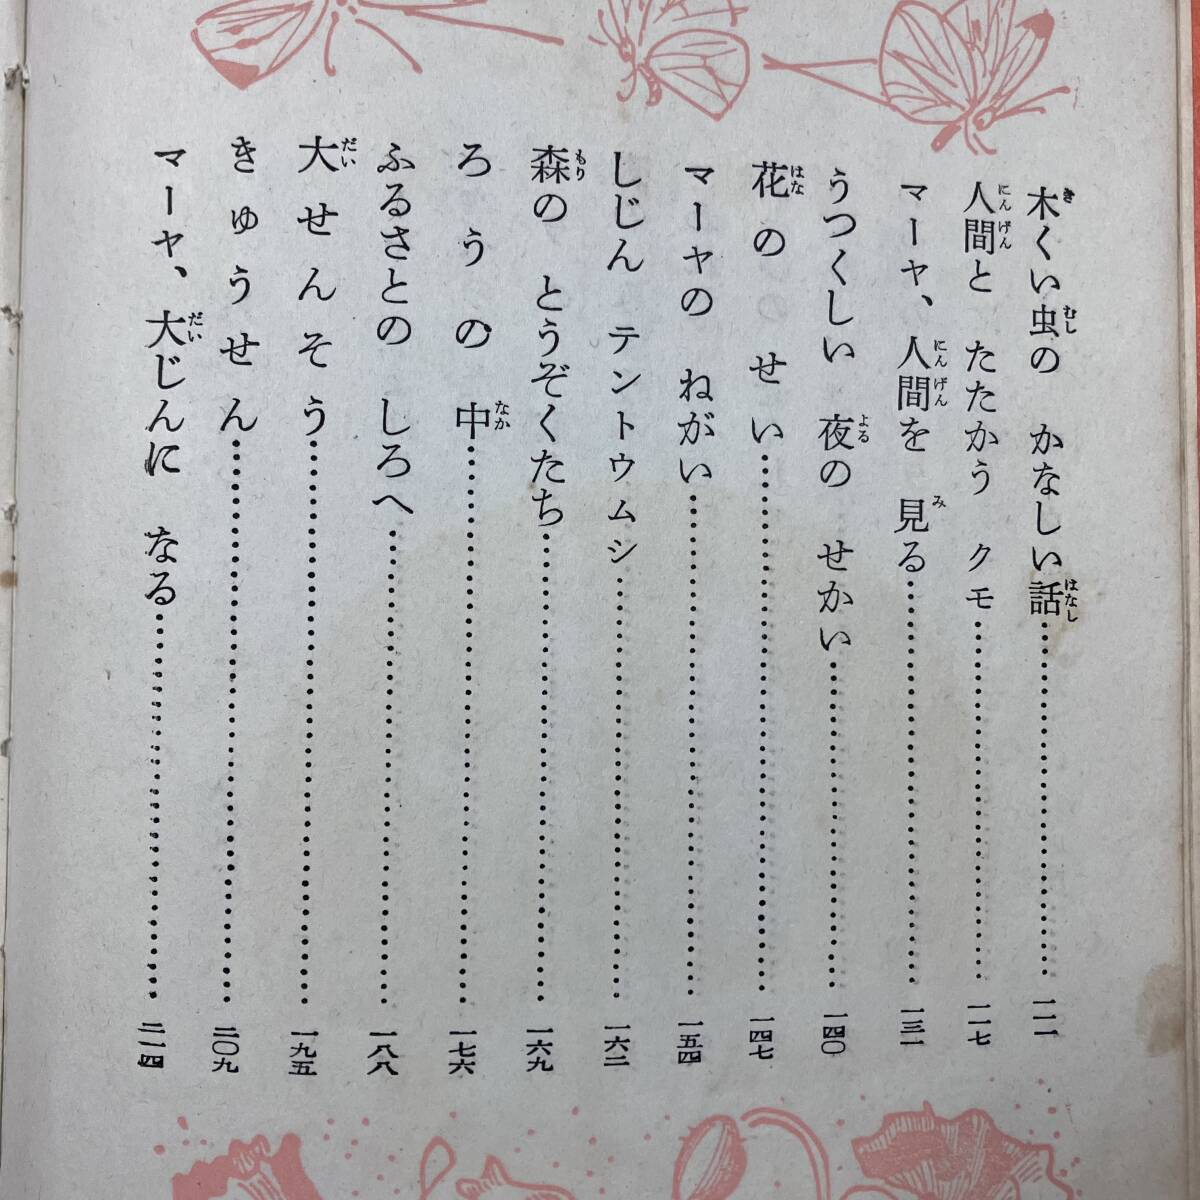 き むし はなし
木くい虫の かなしい話……………一一一
にんげん
人間と たたかう クモ……………一一七
にんげん み
マーヤ、人間を 見る……………一三一
よる
うつくしい 夜の せかい……………一四〇
はな
花の せい……………一四七
マーヤの ねがい……………一五四
しじん テントウムシ……………一六二
もり
森の とうぞくたち……………一六九
なか
ろうの 中……………一七六
ふるさとの しろへ……………一八八
だい
大せんそう……………一九五
きゅうせん……………二〇九
だい
マーヤ、大じんに なる……………二一四